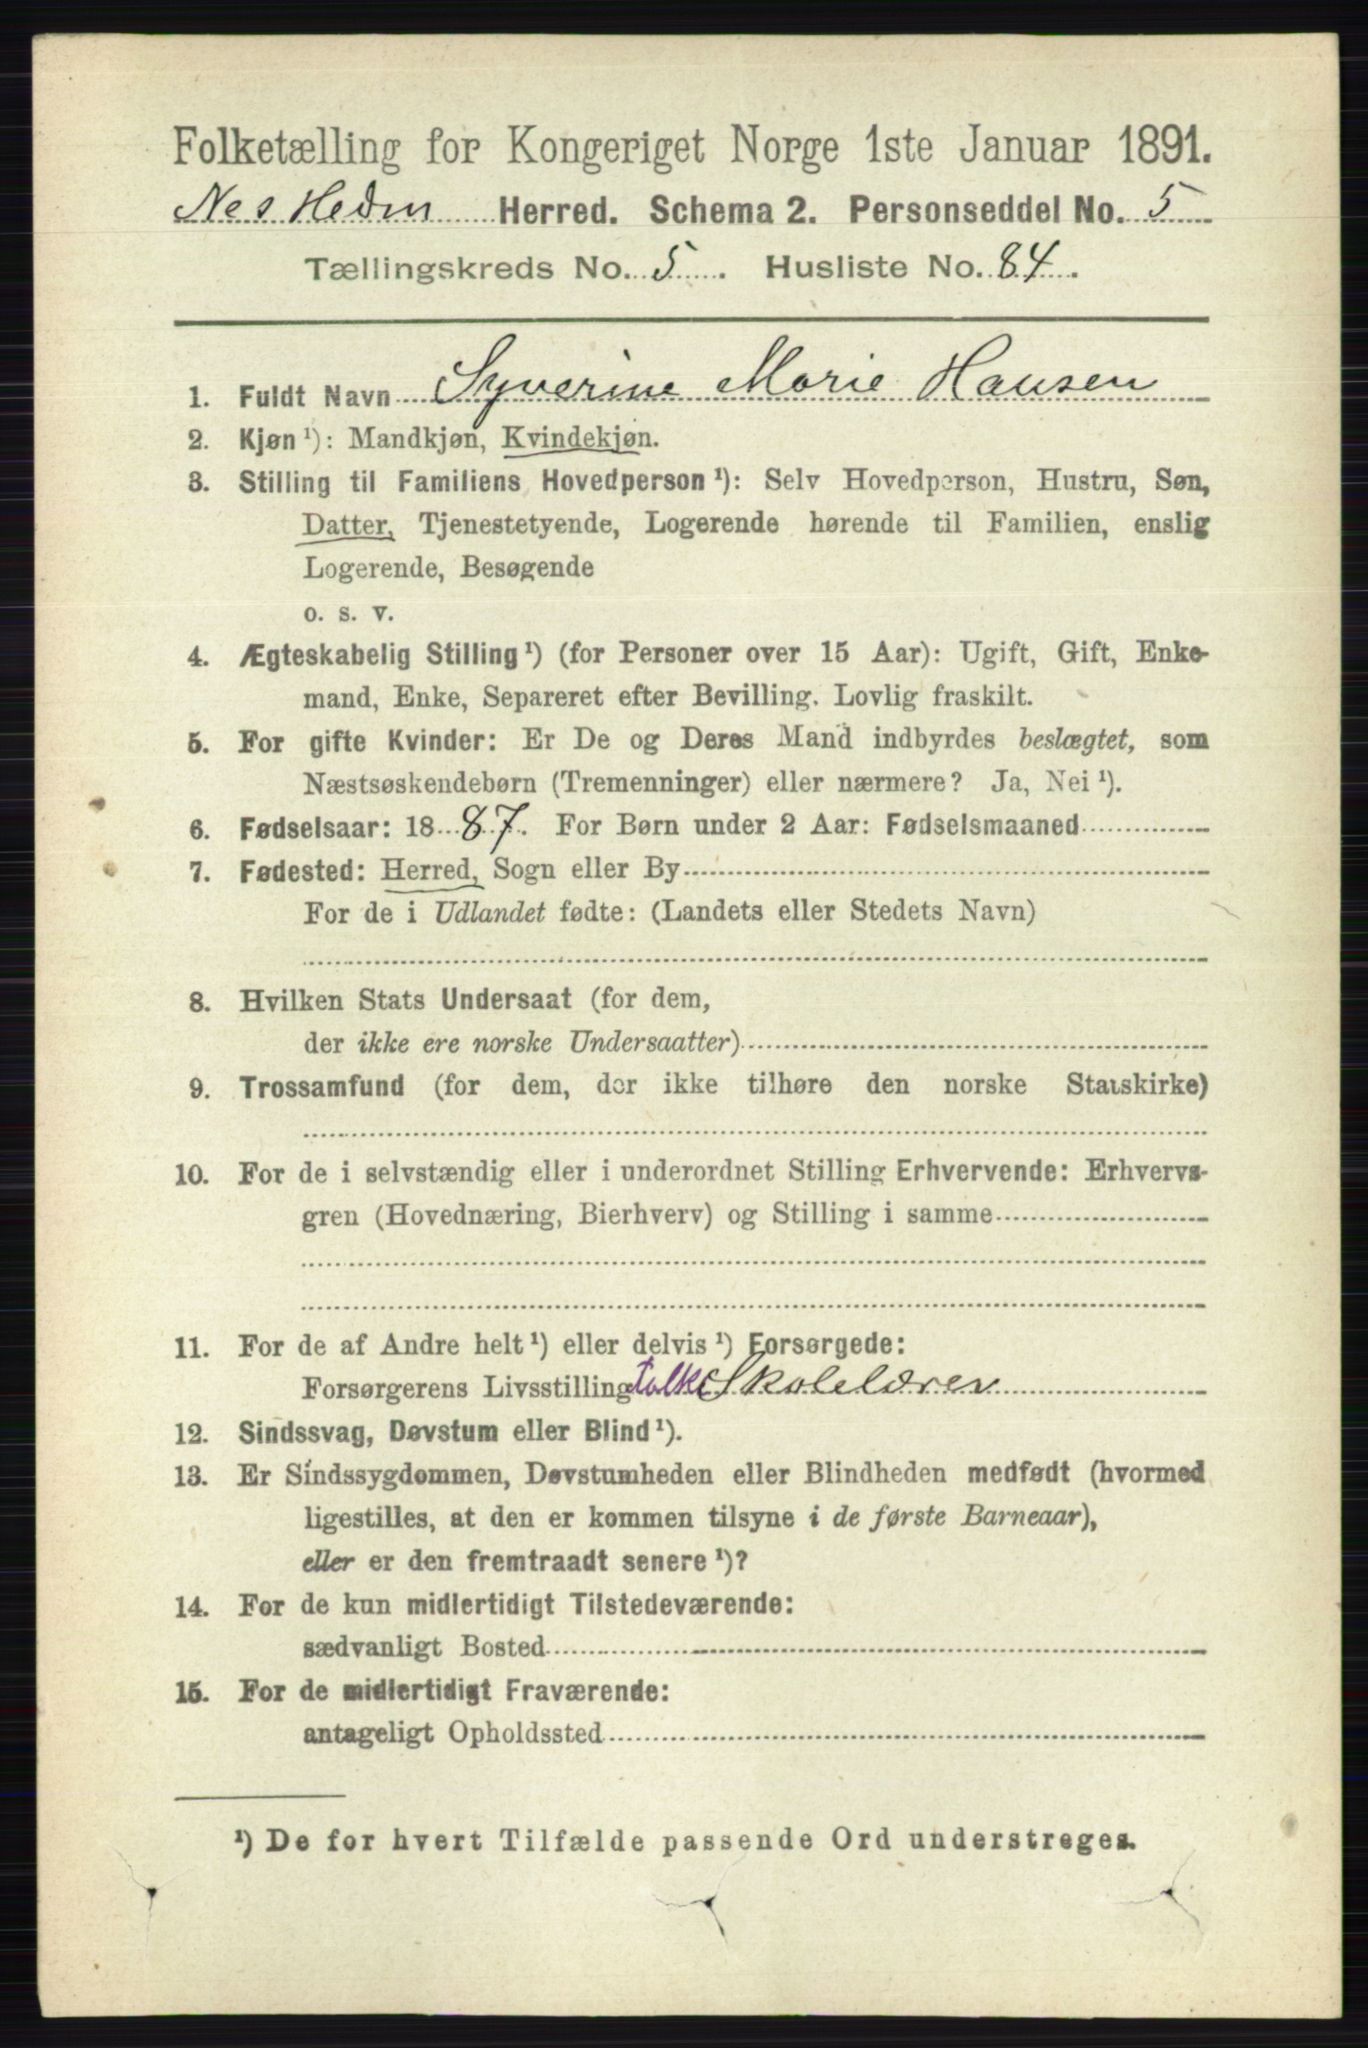 Folketælling for Kongeriget Norge 1ste Januar 1891.
Nes Hedm Herred. Schema 2. Personseddel No. 5
Tællingskreds No. 5. Husliste No. 84.
1. Fuldt Navn Syverine Marie Hansen
2. Kjøn ¹): Mandkjøn, Kvindekjøn.
3. Stilling til Familiens Hovedperson ¹): Selv Hovedperson, Hustru, Søn,
Datter, Tjenestetyende, Logerende hørende til Familien, enslig
Logerende, Besøgende
o. s. v.
4. Ægteskabelig Stilling ¹) (for Personer over 15 Aar): Ugift, Gift, Enke-
mand, Enke, Separeret efter Bevilling. Lovlig fraskilt.
5. For gifte Kvinder: Er De og Deres Mand indbyrdes beslægtet, som
Næstsøskendebørn (Tremenninger) eller nærmere? Ja, Nei ¹).
6. Fødselsaar: 1887. For Børn under 2 Aar: Fødselsmaaned
7. Fødested: Herred, Sogn eller By
For de i Udlandet fødte: (Landets eller Stedets Navn)
8. Hvilken Stats Undersaat (for dem,
der ikke ere norske Undersaatter)
9. Trossamfund (for dem, der ikke tilhøre den norske Statskirke)
10. For de i selvstændig eller i underordnet Stilling Erhvervende: Erhvervs-
gren (Hovednæring, Bierhverv) og Stilling i samme
11. For de af Andre helt ¹) eller delvis ¹) Forsørgede:
Forsørgerens Livsstilling folke Skolelærer
12. Sindssvag, Døvstum eller Blind ¹).
13. Er Sindssygdommen, Døvstumheden eller Blindheden medfødt (hvormed
ligestilles, at den er kommen tilsyne i de første Barneaar),
eller er den fremtraadt senere ¹)?
14. For de kun midlertidigt Tilstedeværende:
sædvanligt Bosted
15. For de midlertidigt Fraværende:
antageligt Opholdssted
¹) De for hvert Tilfælde passende Ord understreges.